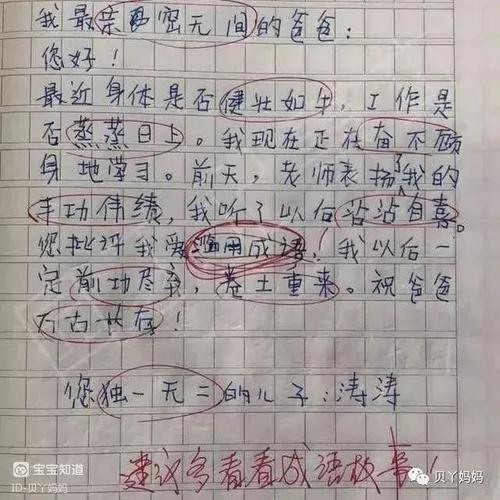 我最亲密无间的爸爸：
您好！
最近身体是否健壮如牛，工作是
否蒸蒸日上。我现在正在奋不顾
身地学习。前天，老师表扬了我的
丰功伟绩，我听了以后沾沾自喜。
您批评我爱滥用成语！我以后一
定前功尽弃，卷土重来。祝爸爸
万古长存！
您独一无二的儿子：涛涛
建议多看看成语故事！
宝宝知道
ID-贝丫妈妈
贝丫妈妈